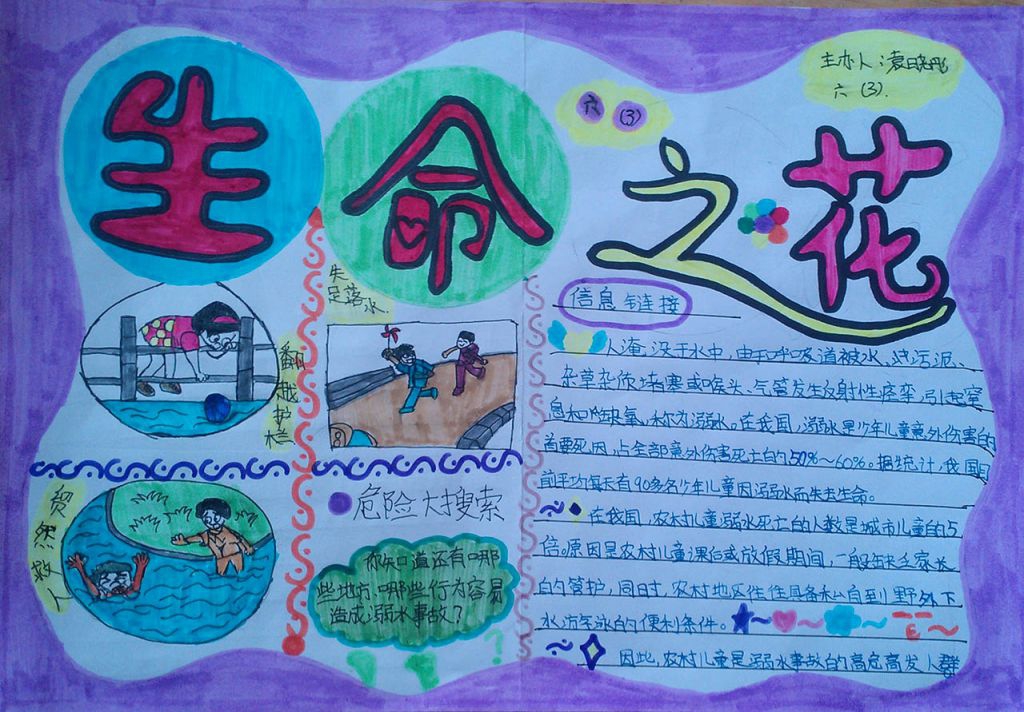 生命之花
六(3)
主办人:袁晓彤
六(3).
失
足落水.
翻越护栏
贸然救人
危险大搜索
你知道还有哪
些地方,哪些行为容易
造成溺水事故?
信息链接
人淹没于水中,由于呼吸道被水、污泥、
杂草杂质堵塞或喉头、气管发生反射性痉挛,引起窒
息和缺氧,称为溺水。在我国,溺水是少年儿童意外伤害的
首要死因,占全部意外伤害死亡的50%~60%。据统计,我国目
前平均每天有90多名少年儿童因溺水而失去生命。
在我国,农村儿童溺水死亡的人数是城市儿童的5
倍。原因是农村儿童课后或放假期间,一般缺乏家长
的管护,同时,农村地区往往具备私自到野外下
水游泳的便利条件。
因此,农村儿童是溺水事故的高危高发人群